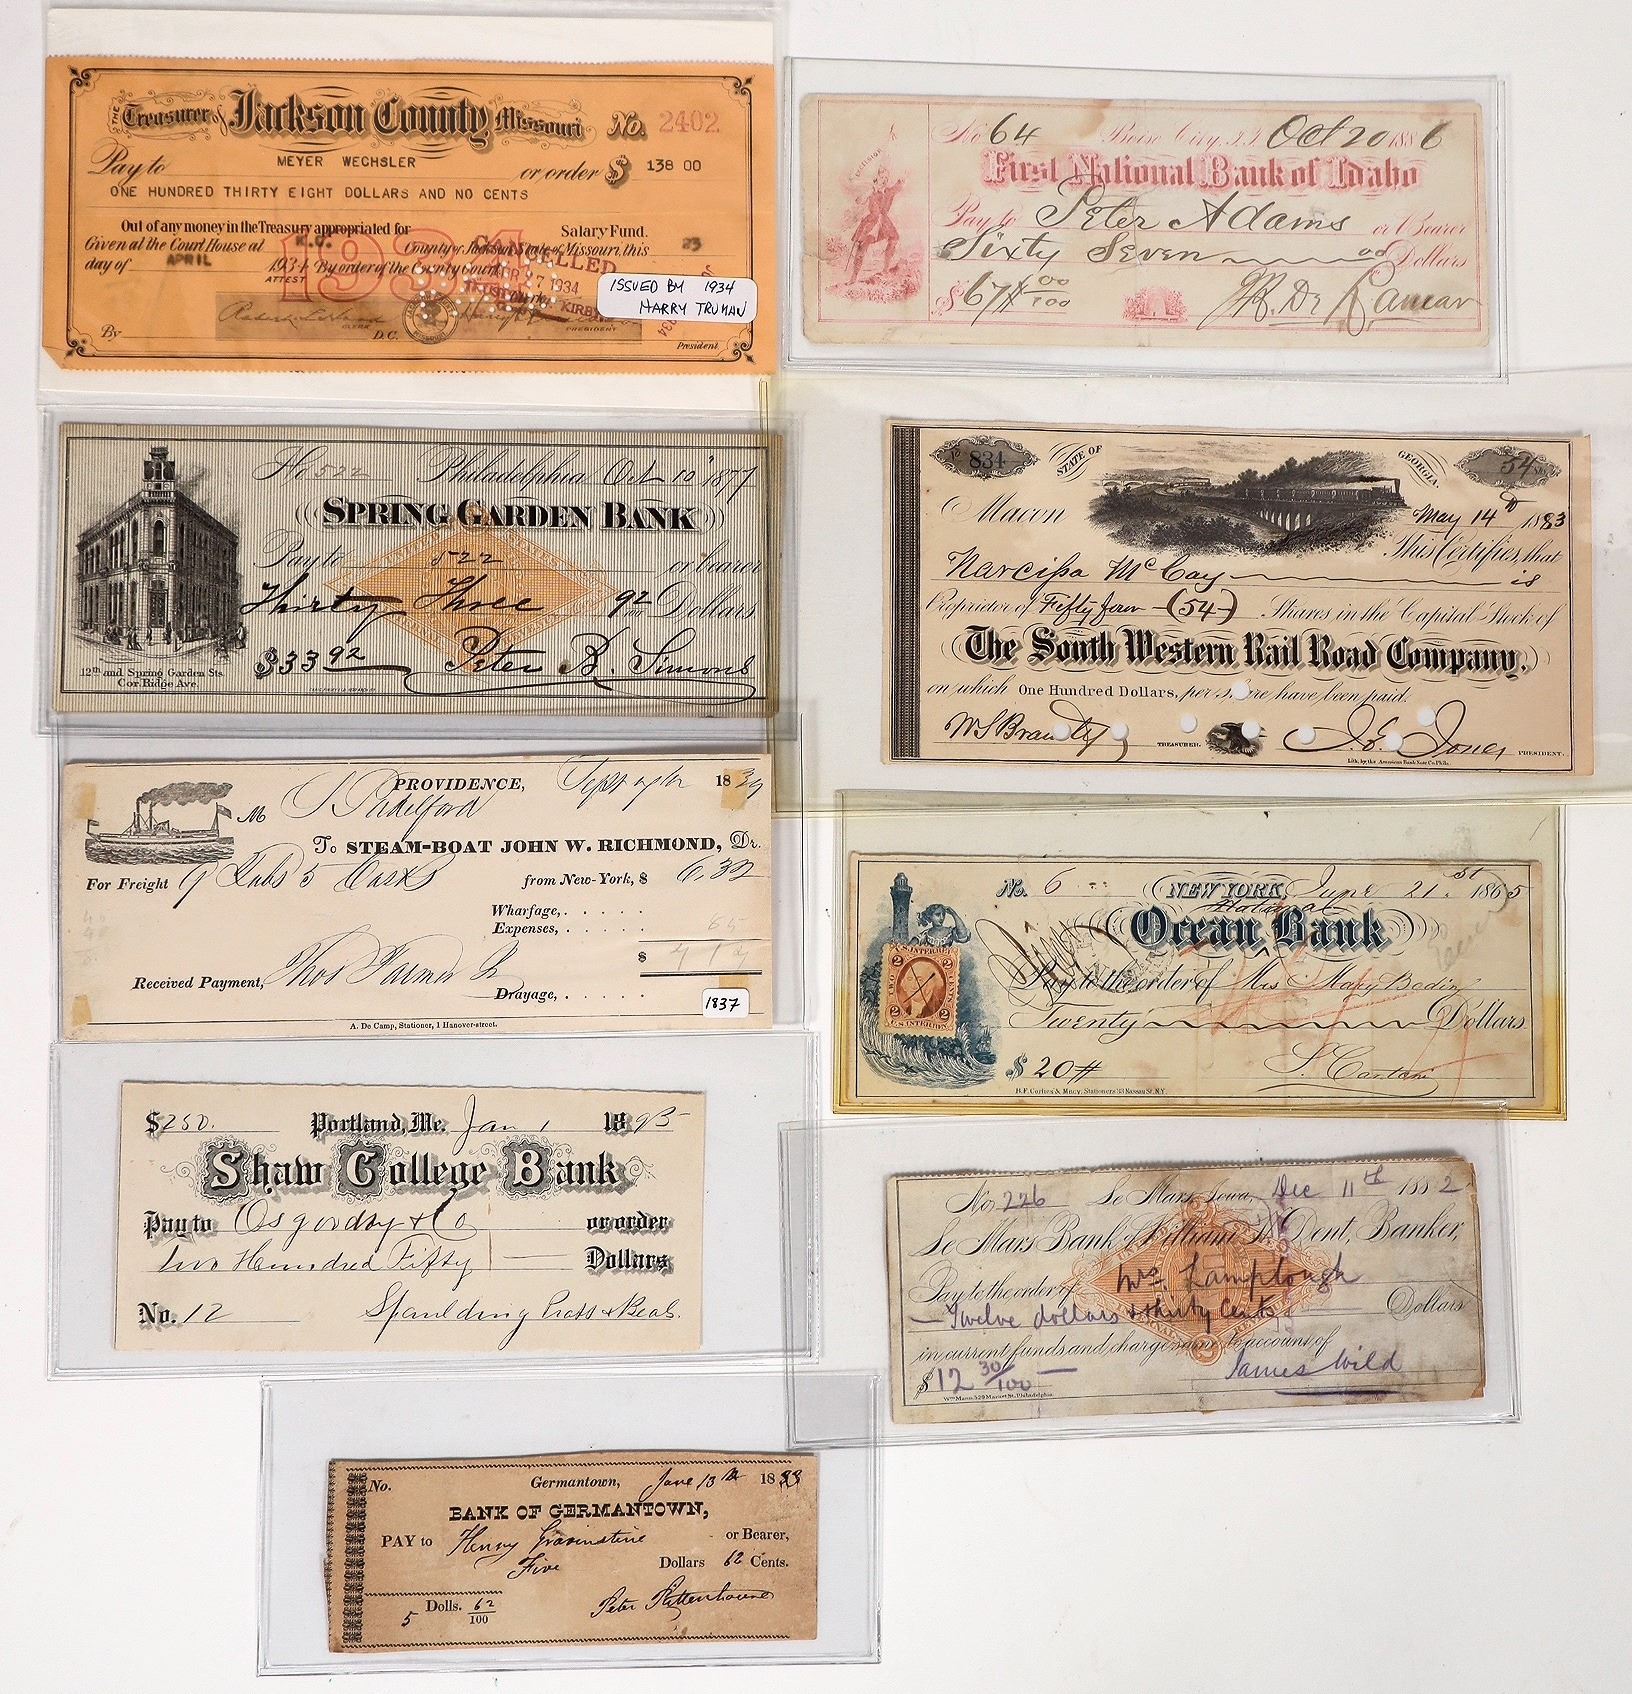 THE Treasurer of Jackson County Missouri No. 2402
Pay to MEYER WECHSLER or order $ 138 00
ONE HUNDRED THIRTY EIGHT DOLLARS AND NO CENTS
Out of any money in the Treasury appropriated for Salary Fund.
Given at the Court House at K.C. County of Jackson State of Missouri, this 23
day of APRIL 1934 By order of the County Court
1934
ATTEST
7 1934
ISSUED BY 1934
HARRY TRUMAN
CLERK
PRESIDENT
By D.C. President
No 64 Boise City, I.T. Oct 20 1886
First National Bank of Idaho
Pay to Peter Adams or Bearer
Sixty Seven 00 Dollars
$67# 00/100
No 522 Philadelphia Oct 10 1877
SPRING GARDEN BANK
Pay to 522 or bearer
Thirty Three 92/100 Dollars
$33 92 Peter B. Simons
12th and Spring Garden Sts.
Cor. Ridge Ave.
No 834 STATE OF GEORGIA. 54 Sh's
Macon May 14th 1883
This Certifies, that
Narcissa McCay is
Proprietor of Fifty four (54) Shares in the Capital Stock of
The South Western Rail Road Company,
on which One Hundred Dollars, per share have been paid.
TREASURER. J. E. Jones PRESIDENT.
Lith. by the American Bank Note Co. Phila.
PROVIDENCE, Sept 18
M
To STEAM-BOAT JOHN W. RICHMOND, Dr.
For Freight 9 5 Casks from New-York, $ 6,32
Wharfage,......
Expenses,...... 65
$
Received Payment,
Drayage,......
1837
A. De Camp, Stationer, 1 Hanover-street.
No. 6 NEW YORK June 21st 1865
National
Ocean Bank
Pay to the order of Mrs Mary
Twenty Dollars
$ 20#
U.S. INTER. REV.
2 2
TWO CENTS
2 2
$250. Portland, Me. Jan 1 1895
Shaw College Bank
Pay to Osgoodby & Co or order
Two Hundred Fifty Dollars
No. 12
No. 226 Le Mars, Iowa, Dec 11th 1882
Le Mars Bank of William H. Dent, Banker,
Pay to the order of Mrs Lamplough
Twelve dollars & thirty Cents Dollars
in current funds and charge same to account of
$12 30/100 James Wild
Wm Mann, 529 Market St. Philadelphia
No. Germantown, June 13th 1833
BANK OF GERMANTOWN,
PAY to Henry or Bearer,
Five Dollars 62 Cents.
5 Dolls. 62/100 Peter Rittenhouse